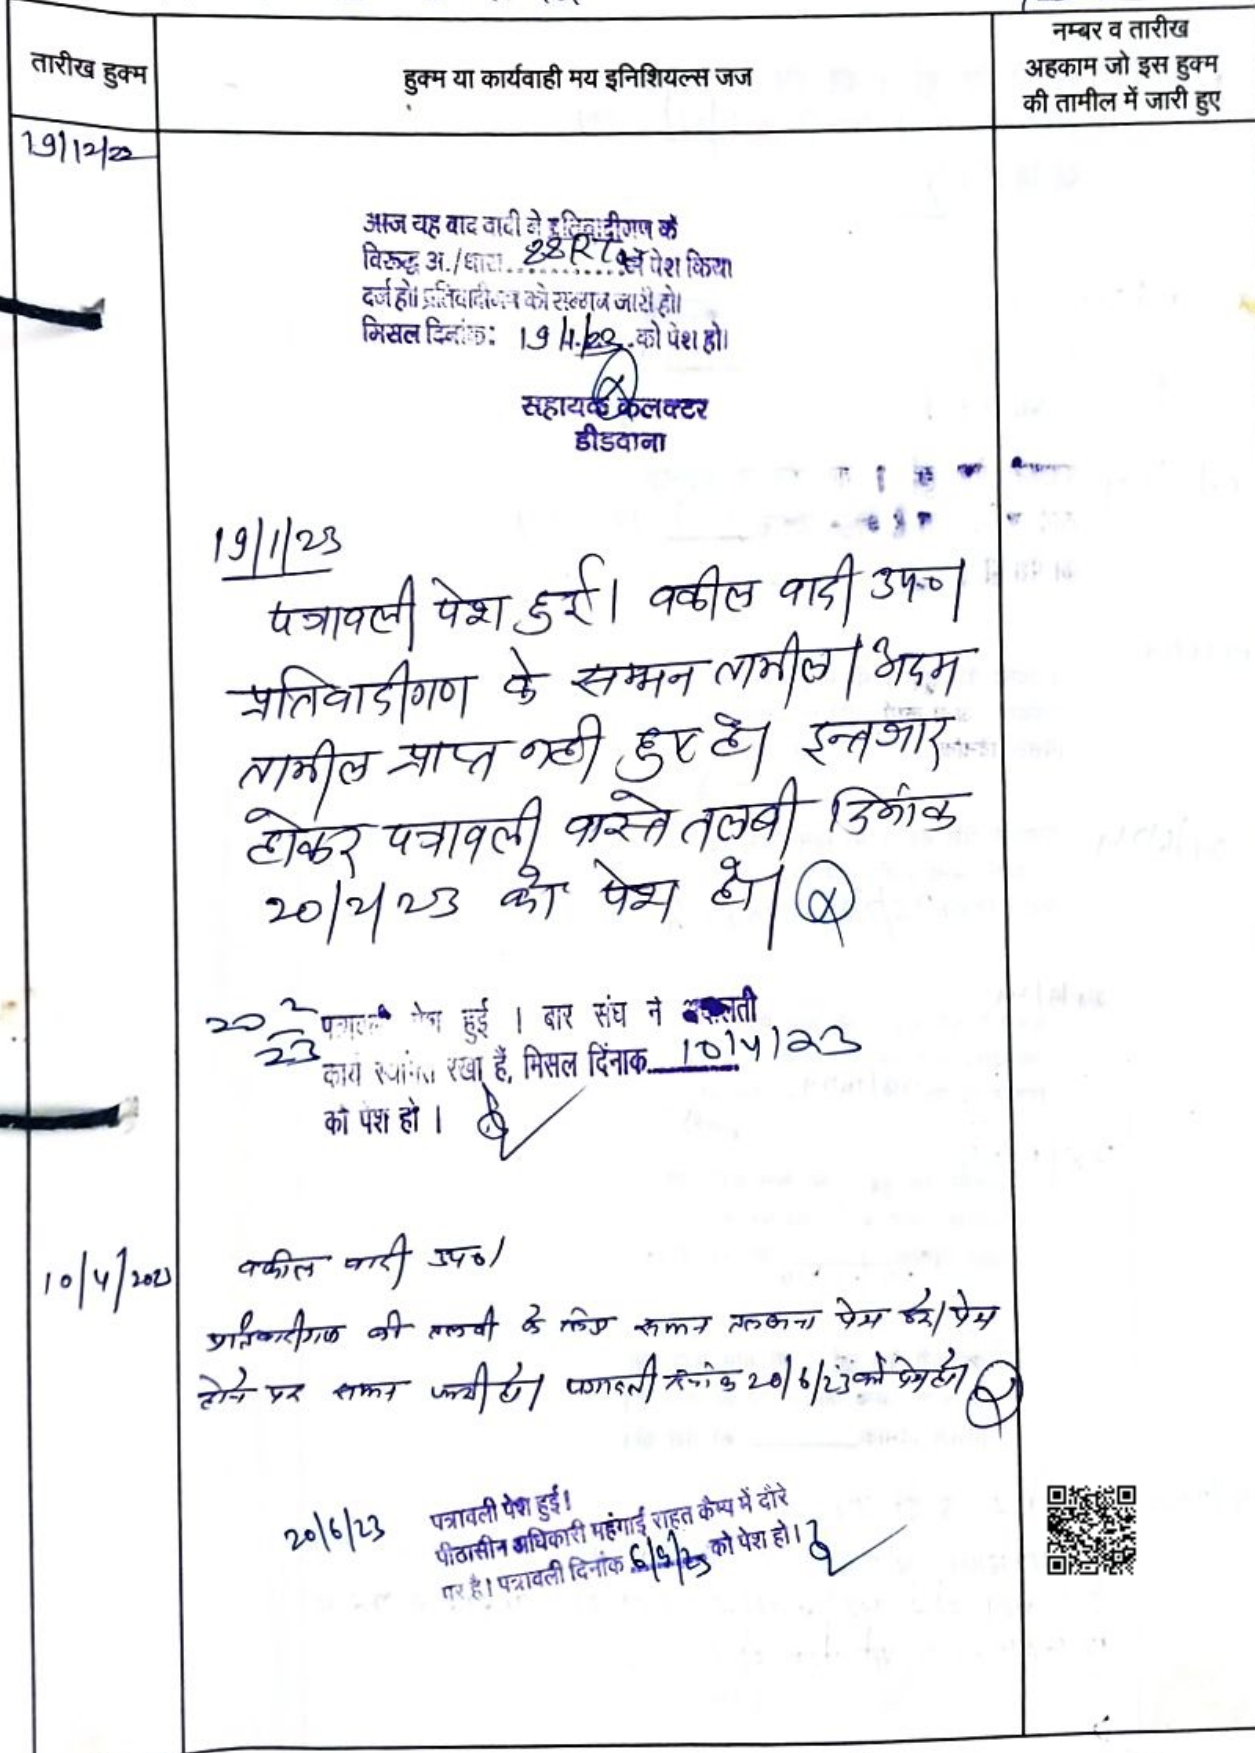 तारीख हुक्म
हुक्म या कार्यवाही मय इनिशियल्स जज
नम्बर व तारीख
अहकाम जो इस हुक्म
की तामील में जारी हुए
19/12/22
आज यह वाद वादी ने प्रतिवादीगण के
विरूद्ध अ./धारा 88 RT में पेश किया
दर्ज हो। प्रतिवादीगण को सम्मन जारी हो।
मिसल दिनांक: 19/1/23 को पेश हो।
सहायक कलक्टर
डीडवाना
19/1/23
पत्रावली पेश हुई। वकील वादी उप०।
प्रतिवादीगण के सम्मन तामील/अदम
तामील प्राप्त नही हुए है। इन्तजार
होकर पत्रावली वास्ते तलबी दिनांक
20/2/23 को पेश हो।
20/2/23 पत्रावली पेश हुई । बार संघ ने वकालती
कार्य स्थगित रखा हैं, मिसल दिनाक 10/4/23
को पेश हो ।
10/4/2023
वकील वादी उप०।
प्रतिवादीगण की तलबी के लिए सम्मन तलबाना पेश करे। पेश
होने पर सम्मन जारी हो। पत्रावली दिनांक 20/6/23 को पेश हो।
20/6/23
पत्रावली पेश हुई।
पीठासीन अधिकारी महंगाई राहत कैम्प में दौरे
पर है। पत्रावली दिनांक 6/9/23 को पेश हो।